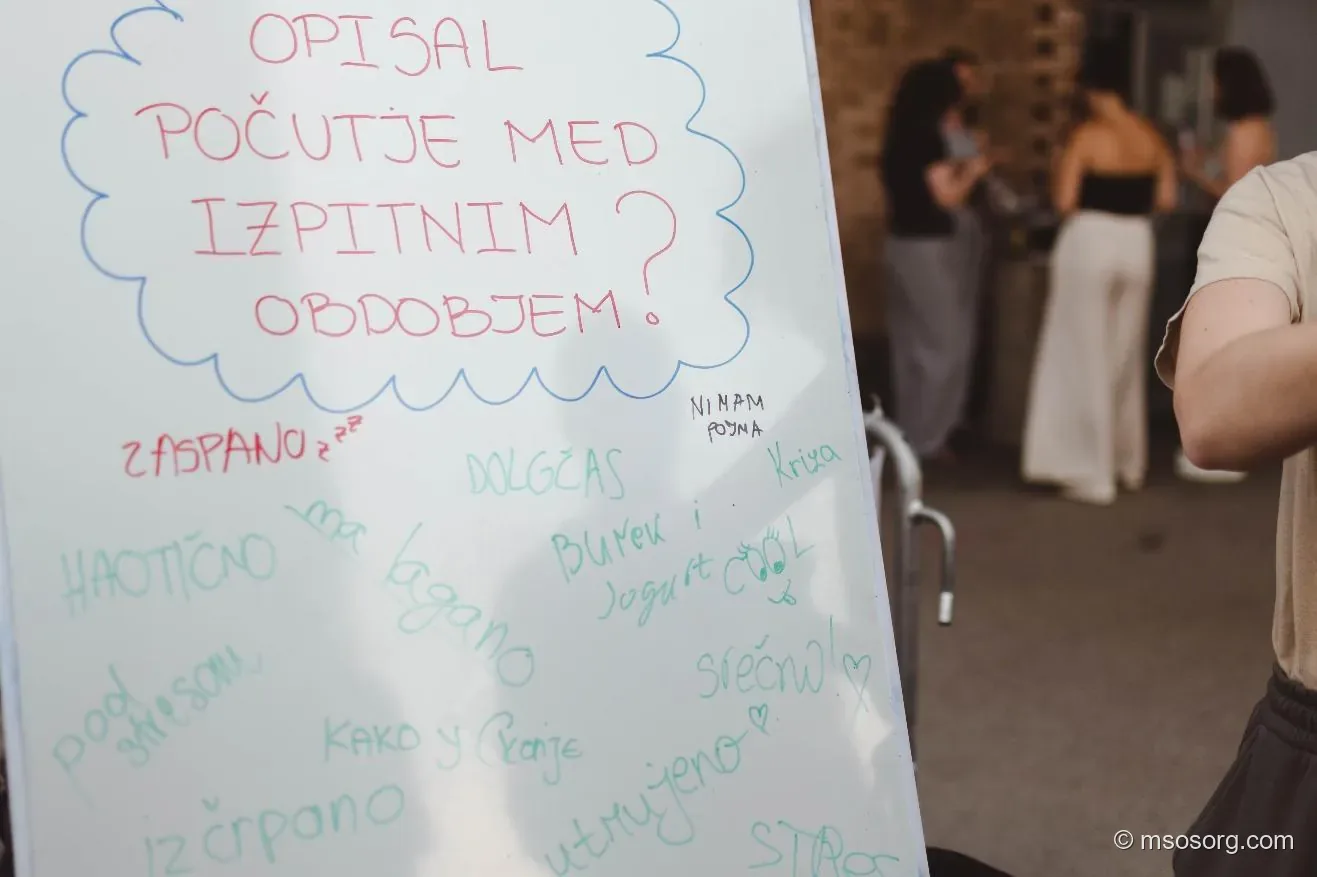 OPISAL
POČUTJE MED
IZPITNIM
OBDOBJEM?
NIMAM
POJMA
ZASPANO zzzz
DOLGČAS
Kriza
HAOTIČNO
ma
lagano
Burek i
Jogurt COOL
srečno!
pod
stresom
KAKO
utrujeno
izčrpano
© msosorg.com